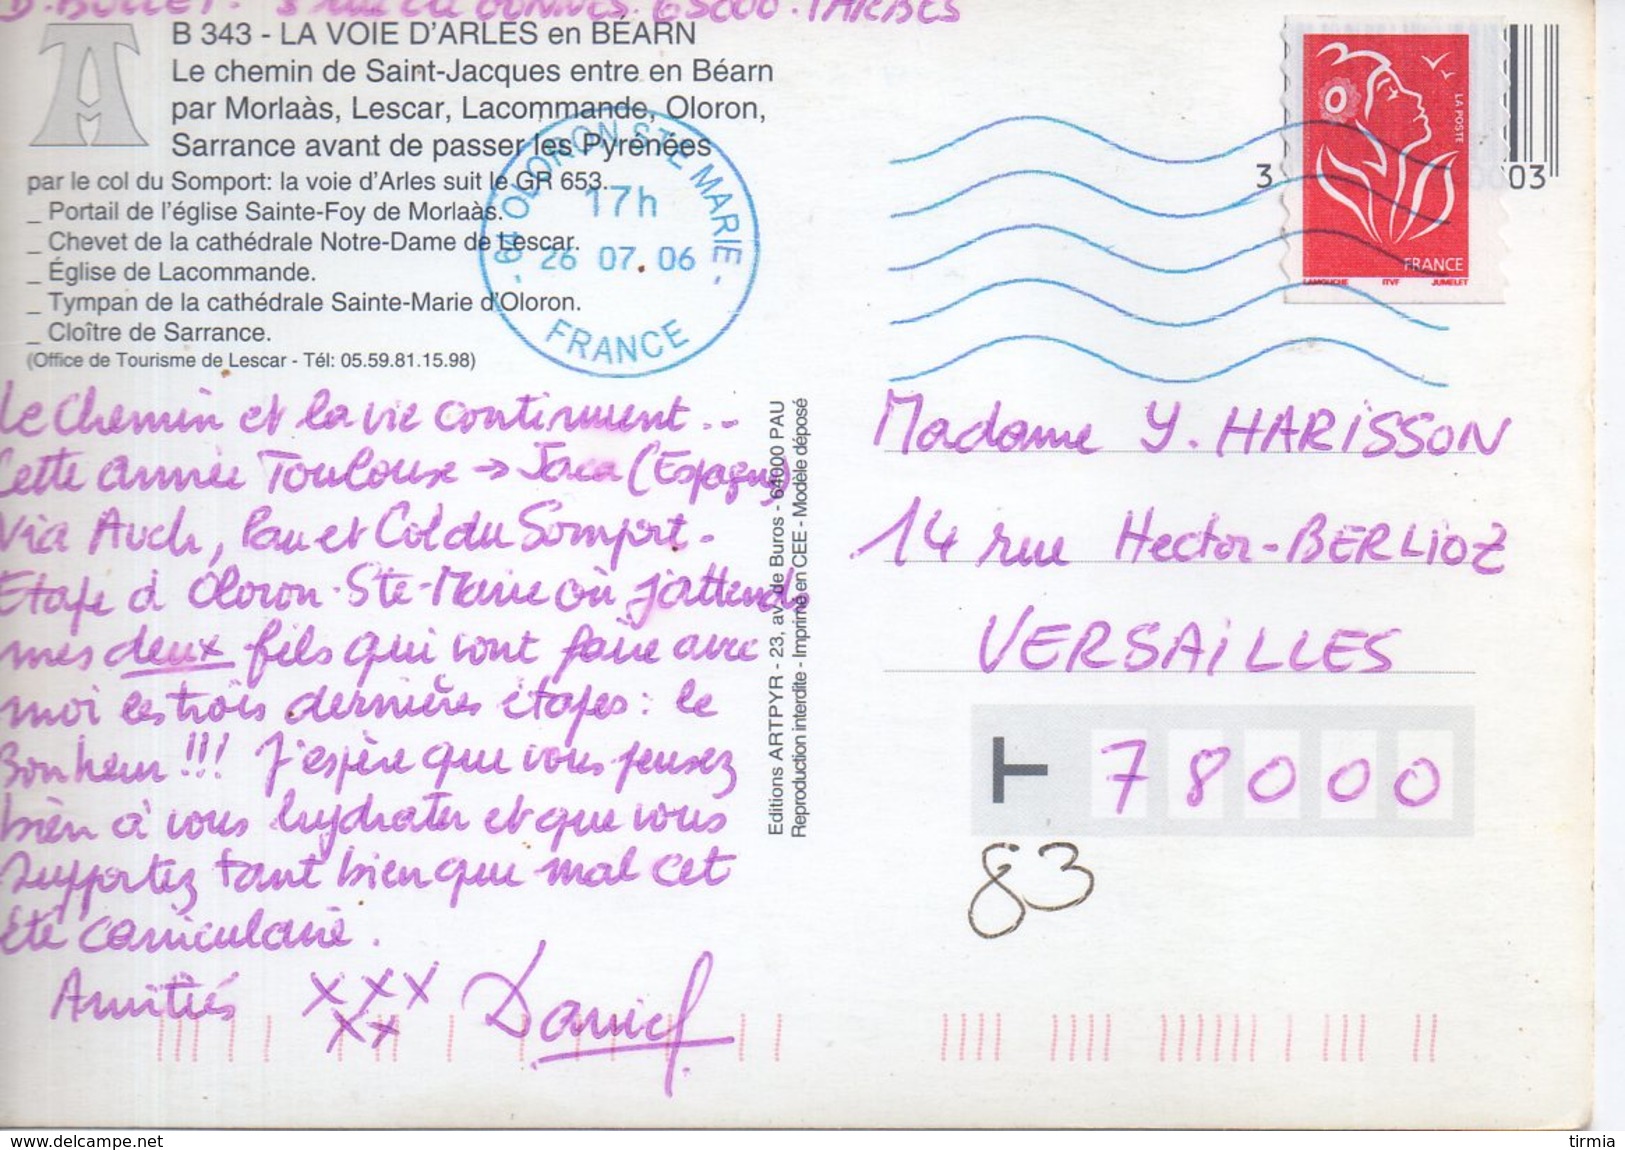 65000. TARBES
B 343 - LA VOIE D'ARLES en BÉARN
Le chemin de Saint-Jacques entre en Béarn
par Morlaàs, Lescar, Lacommande, Oloron,
Sarrance avant de passer les Pyrénées
par le col du Somport: la voie d'Arles suit le GR 653.
_ Portail de l'église Sainte-Foy de Morlaàs.
_ Chevet de la cathédrale Notre-Dame de Lescar.
_ Église de Lacommande.
_ Tympan de la cathédrale Sainte-Marie d'Oloron.
_ Cloître de Sarrance.
(Office de Tourisme de Lescar - Tél: 05.59.81.15.98)
64 OLORON STE MARIE
17h
26 07.06
FRANCE
LA POSTE
FRANCE
LAMOUCHE ITVF JUMELET
3
03
Le Chemin et la vie continuent..
Cette année Toulouse → Jaca (Espagne)
Via Auch, Pau et Col du Somport.
Etape à Oloron-Ste-Marie où j'attends
mes deux fils qui vont faire avec
moi les trois dernières étapes : le
Bonheur !!! J'espère que vous pensez
bien à vous hydrater et que vous
supportez tant bien que mal cet
été caniculaire.
Amitiés XXX
XX
Daniel
Editions ARTPYR - 23, av. de Buros - 64000 PAU
Reproduction interdite - Imprimé en CEE - Modèle déposé
Madame Y. HARISSON
14 rue Hector-BERLIOZ
VERSAILLES
78000
83
www.delcampe.net
tirmia